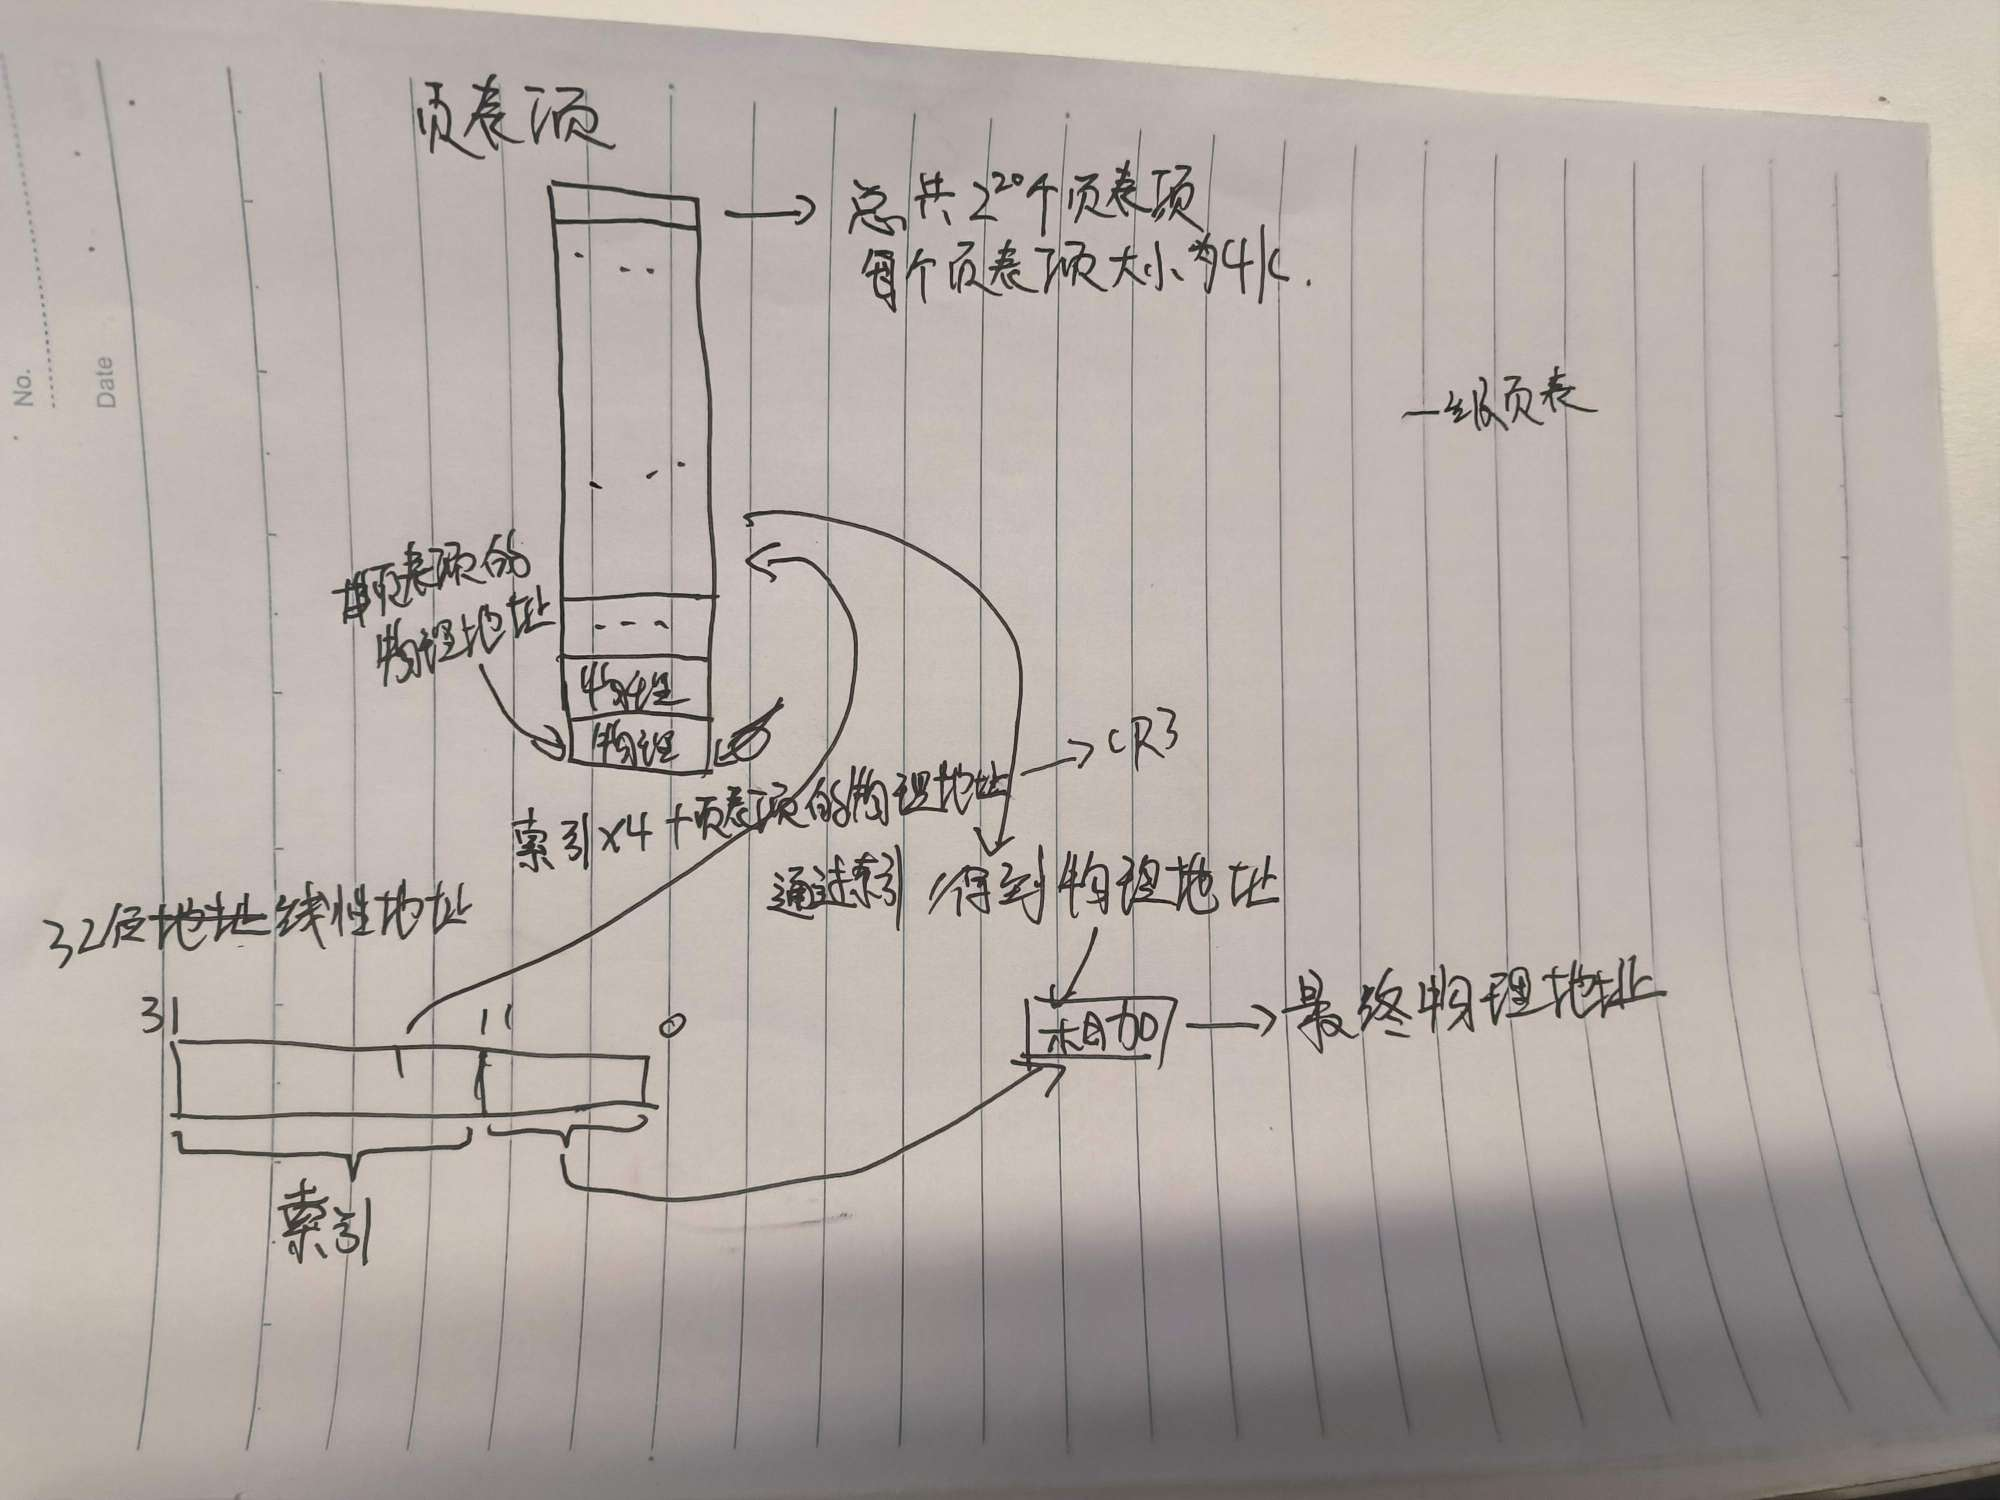 No.
Date
页表项
总共2²⁰个页表项
每个页表项大小为4k.
一级页表
页表项的
物理地址
物理
物理
CR3
索引x4+页表项的物理地址
通过索引 得到物理地址
32位地址线性地址
31 11 0
相加
最终物理地址
索引